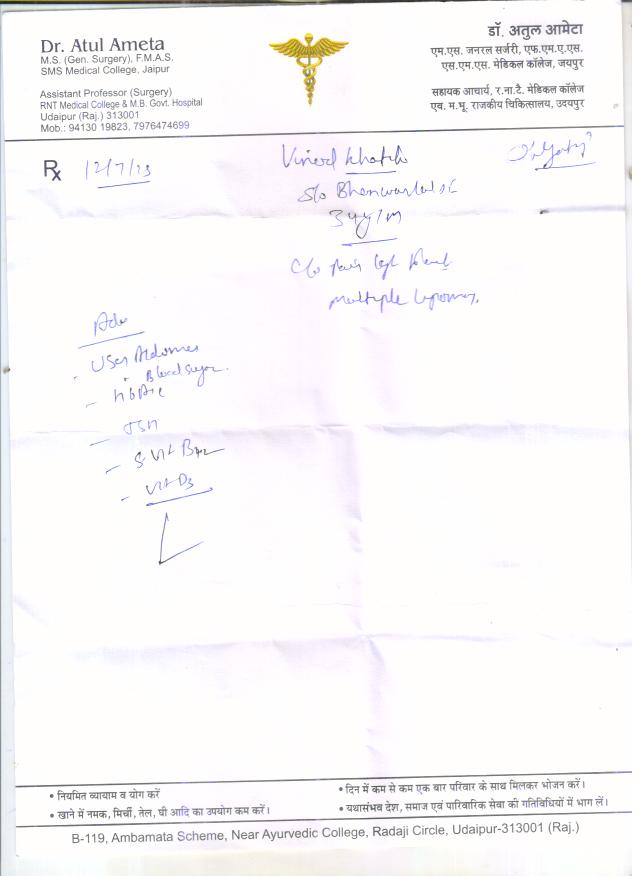 Dr. Atul Ameta
M.S. (Gen. Surgery), F.M.A.S.
SMS Medical College, Jaipur
Assistant Professor (Surgery)
RNT Medical College & M.B. Govt. Hospital
Udaipur (Raj.) 313001
Mob.: 94130 19823, 7976474699
डॉ. अतुल आमेटा
एम.एस. जनरल सर्जरी, एफ.एम.ए.एस.
एस.एम.एस. मेडिकल कॉलेज, जयपुर
सहायक आचार्य, र.ना.टै. मेडिकल कॉलेज
एवं म.भू. राजकीय चिकित्सालय, उदयपुर
Rx 12/7/23
Vinod Khatik
S/o Bhanwarlal
34y/m
C/o Pain
multiple lipomas
Adv
- USG Abdomen
- Blood sugar
- HbA1c
- TSH
- S. Vit B12
- Vit D3
• नियमित व्यायाम व योग करें
• खाने में नमक, मिर्ची, तेल, घी आदि का उपयोग कम करें।
• दिन में कम से कम एक बार परिवार के साथ मिलकर भोजन करें।
• यथासंभव देश, समाज एवं पारिवारिक सेवा की गतिविधियों में भाग लें।
B-119, Ambamata Scheme, Near Ayurvedic College, Radaji Circle, Udaipur-313001 (Raj.)